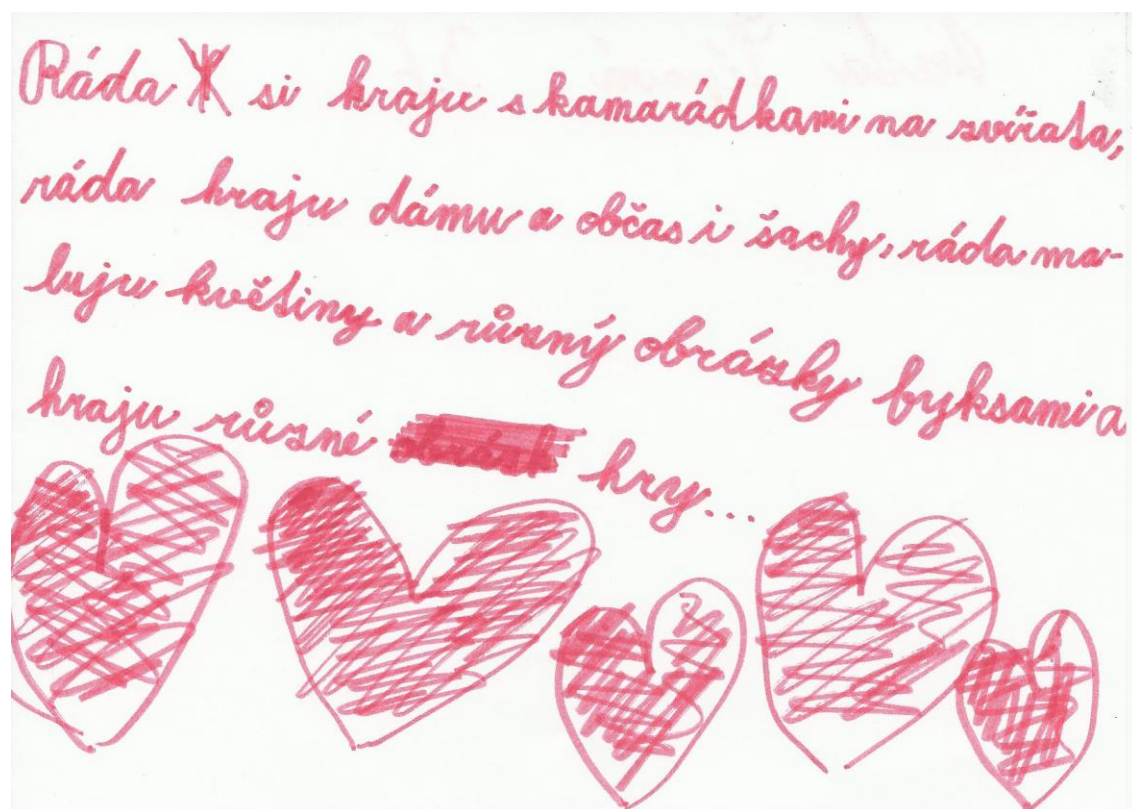 Ráda si hraju s kamarádkami na zvířata,
ráda hraju dámu a občas i šachy, ráda ma-
luju květiny a různý obrázky fyksami a
hraju různé hry...